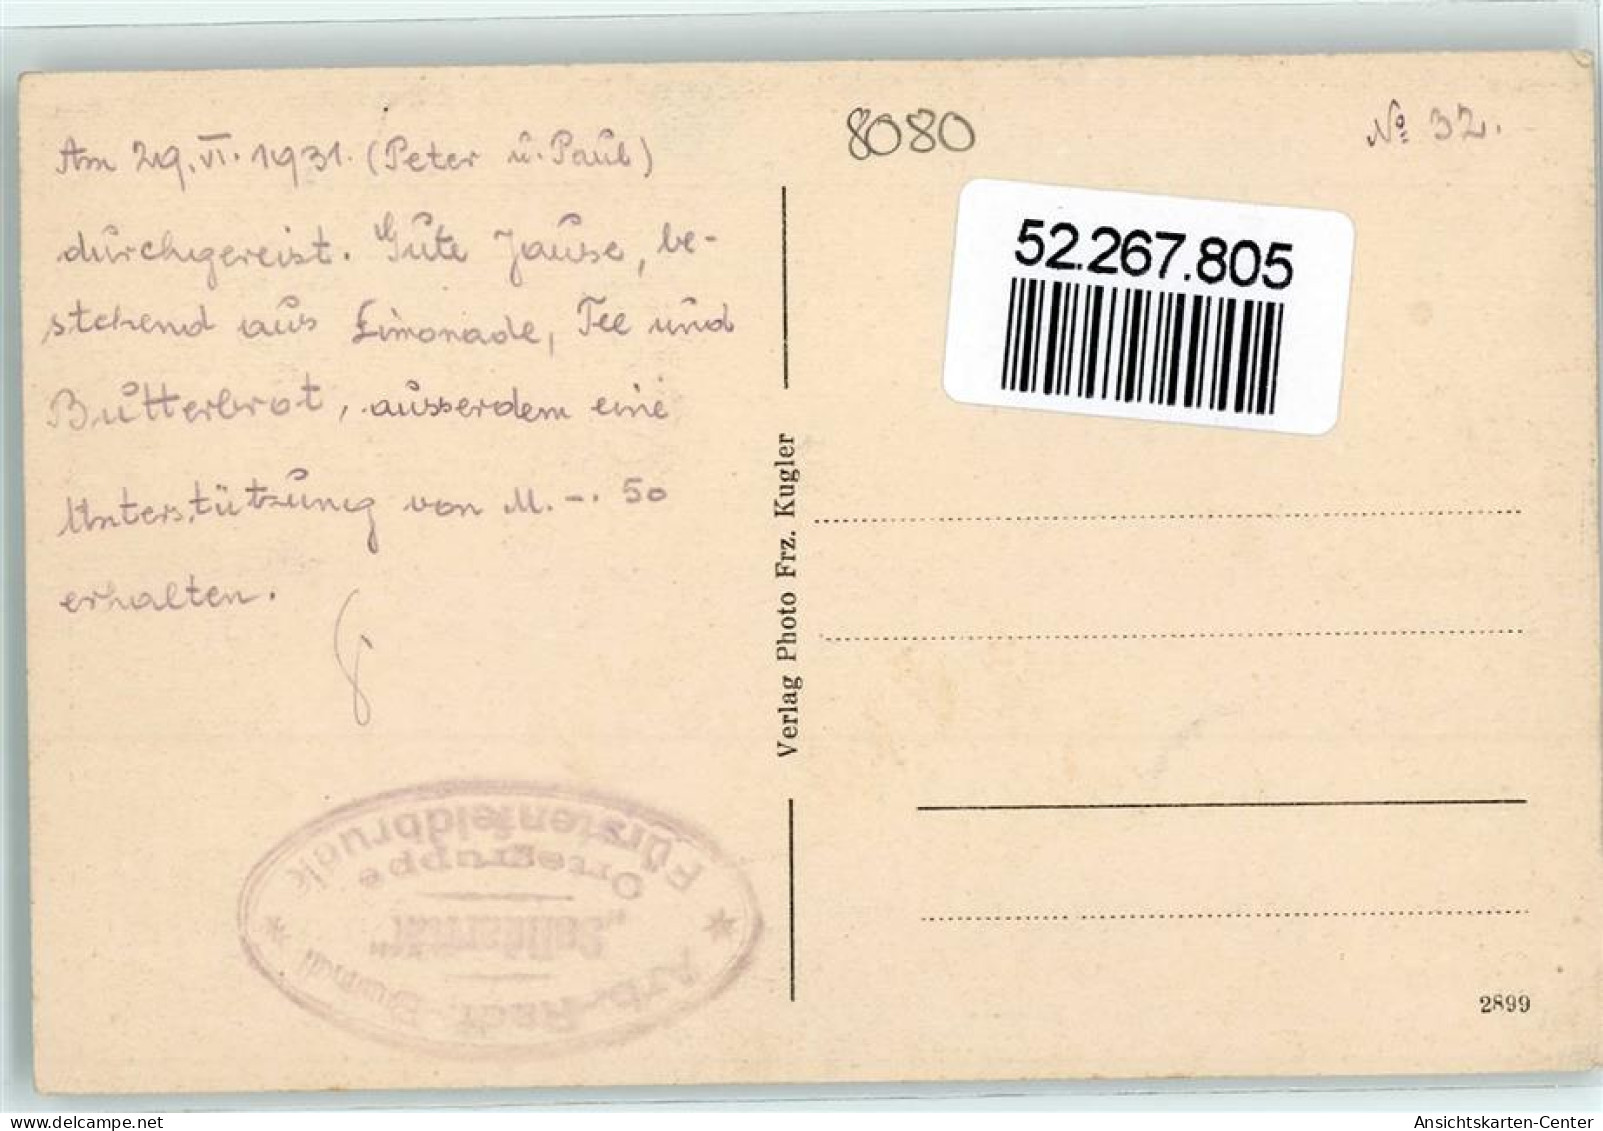 Am 29. VI. 1931. (Peter u. Paul)
durchgereist. Gute Jause, be-
stehend aus Limonade, Tee und
Butterbrot, ausserdem eine
Unterstützung von M. -. 50
erhalten.
Arb. Radf. Bund
„Solidarität"
Ortsgruppe
Fürstenfeldbruck
Verlag Photo Frz. Kugler
8080
No 32.
52.267.805
2899
Ansichtskarten-Center